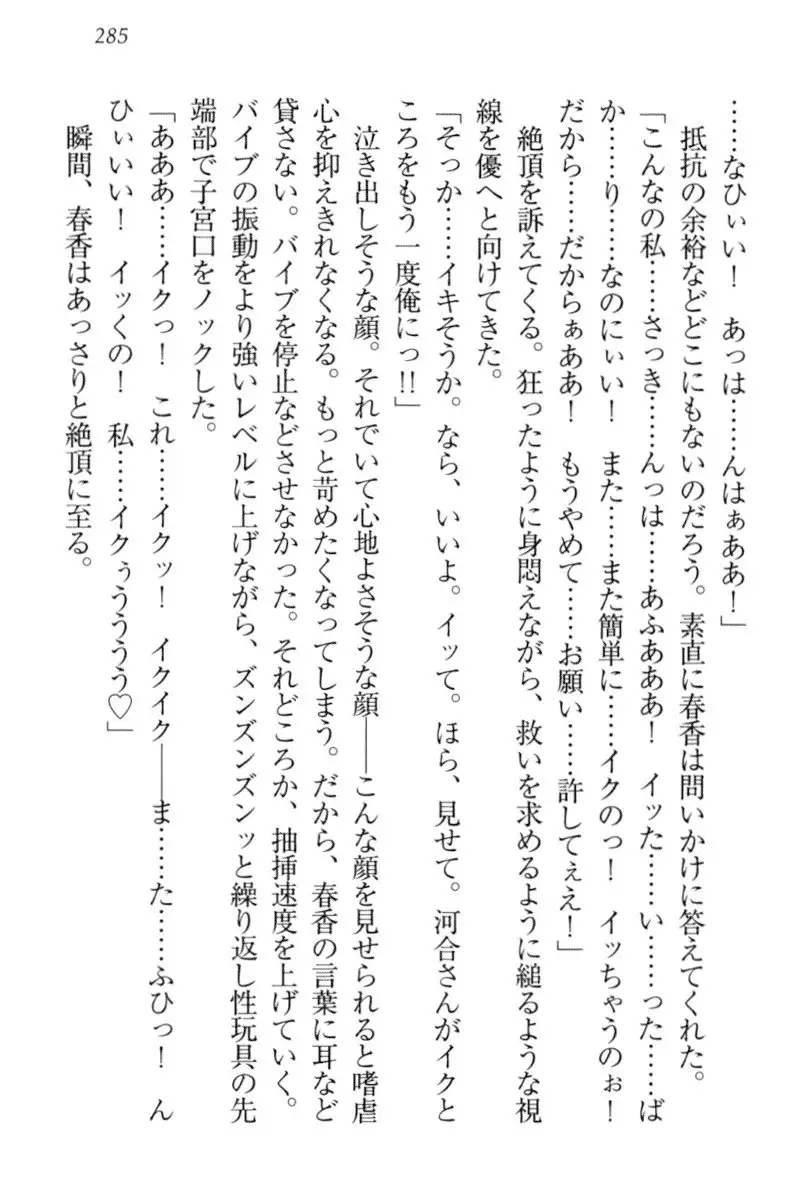 285
……なひぃい！　あっは……んはぁああ！」
　抵抗の余裕などどこにもないのだろう。素直に春香は問いかけに答えてくれた。
「こんなの私……さっき……んっは……あふあああ！　イッた……い……った……ば
か……り……なのにぃい！　また……また簡単に……イクのっ！　イッちゃうのぉ！
だから……だからぁああ！　もうやめて……お願い……許してぇえ！」
　絶頂を訴えてくる。狂ったように身悶えながら、救いを求めるように縋るような視
線を優へと向けてきた。
「そっか……イキそうか。なら、いいよ。イッて。ほら、見せて。河合さんがイクと
ころをもう一度俺にっ!!」
　泣き出しそうな顔。それでいて心地よさそうな顔――こんな顔を見せられると嗜虐
心を抑えきれなくなる。もっと苛めたくなってしまう。だから、春香の言葉に耳など
貸さない。バイブを停止などさせなかった。それどころか、抽挿速度を上げていく。
バイブの振動をより強いレベルに上げながら、ズンズンズンッと繰り返し性玩具の先
端部で子宮口をノックした。
「あああ……イクっ！　これ……イクッ！　イクイク――ま……た……ふひっ！　ん
ひぃいい！　イッくの！　私……イクぅうううう♡」
　瞬間、春香はあっさりと絶頂に至る。